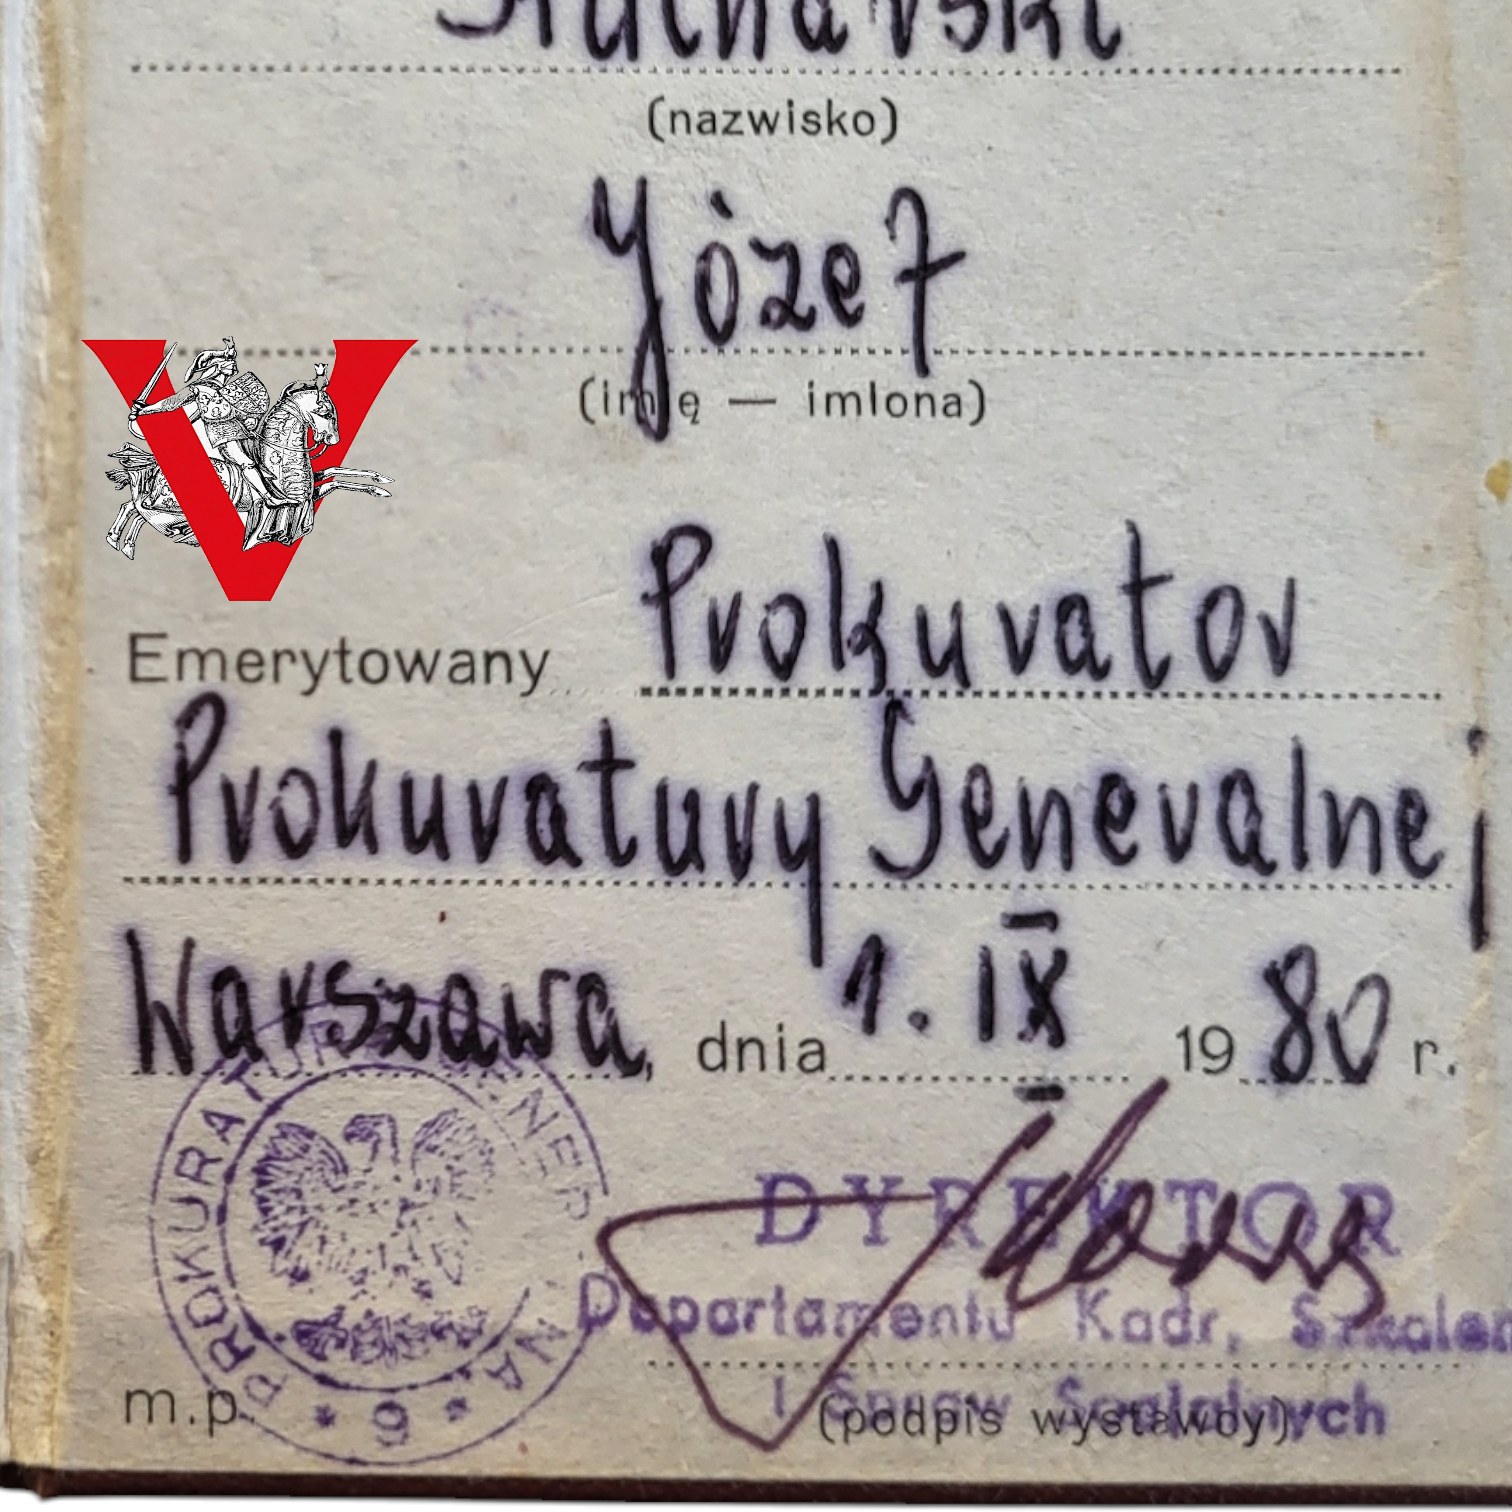 (nazwisko)
Józef
(imię — imiona)
V
Emerytowany Prokurator
Prokuratury Generalnej
Warszawa, dnia 1. IX 1980 r.
PROKURATURA GENERALNA * 6 *
DYREKTOR
Departamentu Kadr, Szkolen
i Spraw Socjalnych
m.p.
(podpis wystawcy)